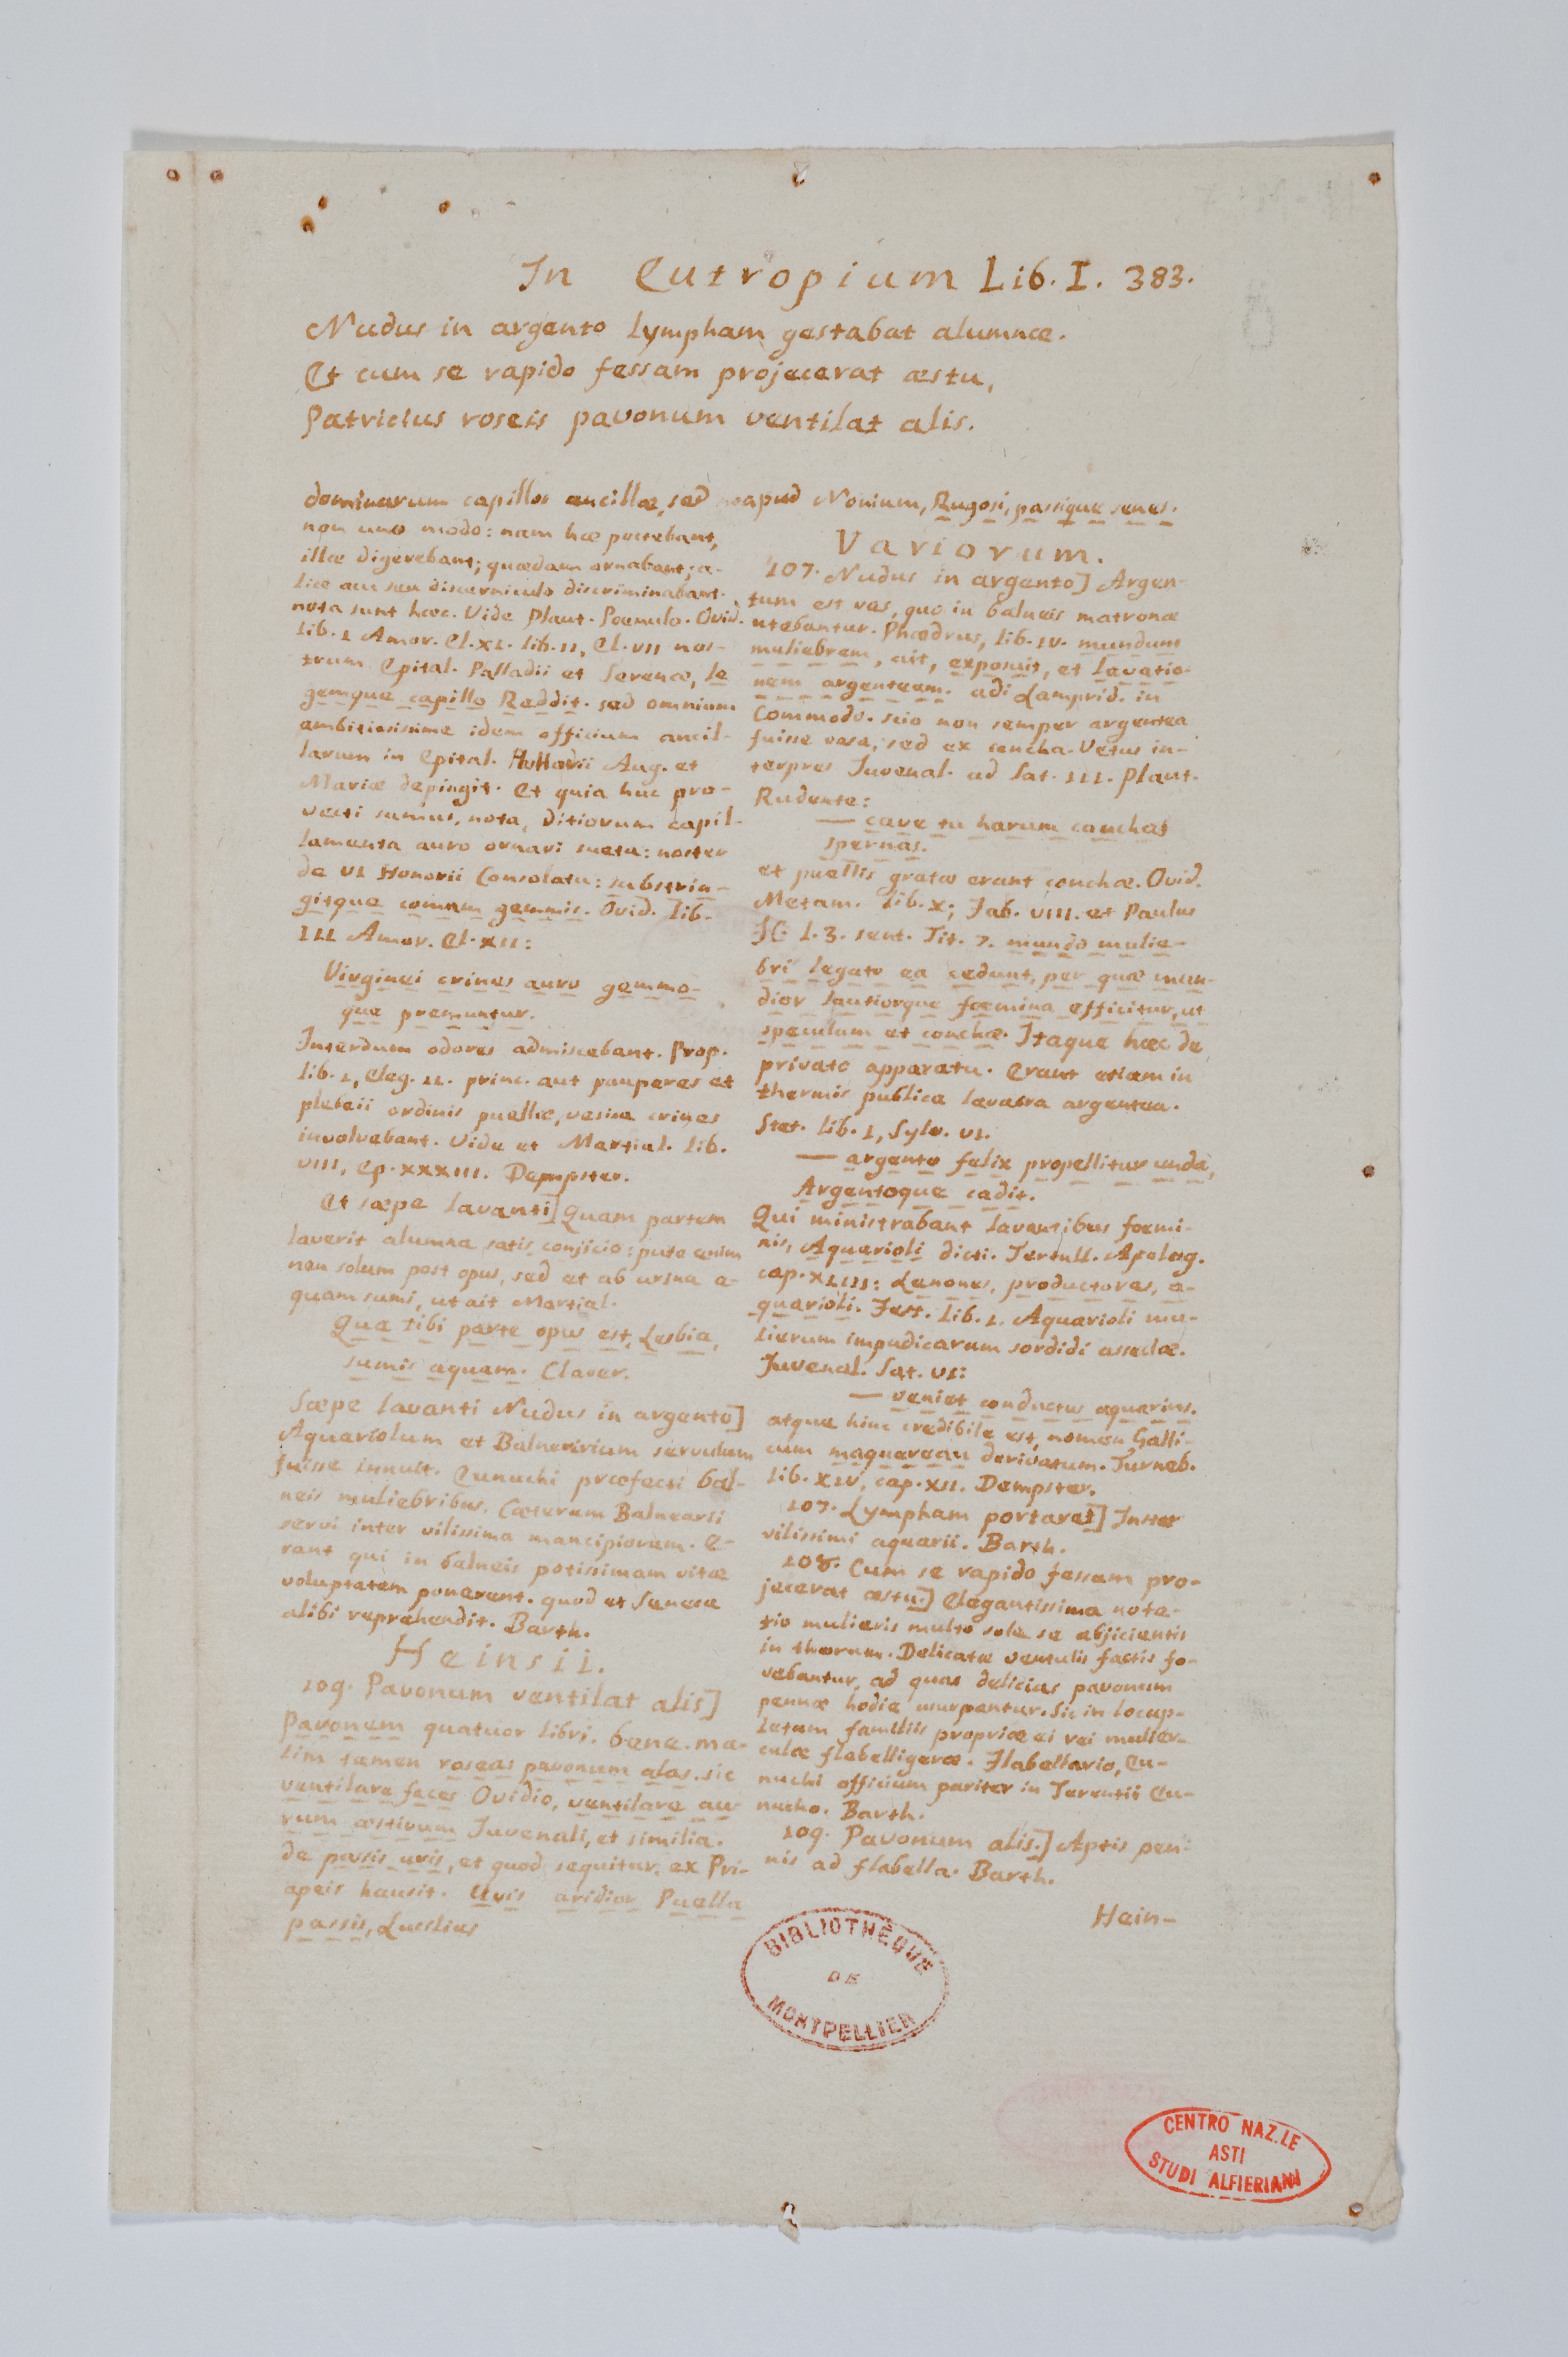 In Eutropium Lib. I. 383.
Nudus in argento lympham gestabat alumnæ.
Et cum se rapido fessam projecerat æstu,
Patricius roseis pavonum ventilat alis.
dominarum capillos ancillæ, sed
non uno modo: nam hæ pectebant,
illæ digerebant; quædam ornabant; a-
liæ acu seu discerniculo discriminabant.
nota sunt hæc. Vide Plaut. Poenulo. Ovid.
lib. I Amor. El. XI. lib. II, El. VII nos-
trum Epital. Palladii et Serenæ, le
gemque capillo Reddit. sed omnium
ambitiosissime idem officium ancil-
larum in Epital. Honorii Aug. et
Mariæ depingit. Et quia huc pro-
vecti sumus, nota, ditiorum capil-
lamenta auro ornari sueta: noster
de VI Honorii Consolatu: substrin-
gitque comam gemmis. Ovid. lib.
III Amor. El. XII:
Virginei crines auro gemmo-
que premuntur.
Interdum odores admiscebant. Prop.
lib. I, Eleg. II. princ. aut pauperes et
plebeii ordinis puellæ, vesica crines
involvebant. Vide et Martial. lib.
VIII, Ep. XXXIII. Dempster.
Et sæpe lavanti] Quam partem
laverit alumna satis conjicio: puta enim
non solum post opus, sed et ab urina a-
quam sumi, ut ait Martial.
Qua tibi parte opus est, Lesbia,
sumis aquam. Claver.
Sæpe lavanti Nudus in argento]
Aquariolum et Balnearium servulum
fuisse innuit. Eunuchi præfecti bal-
neis muliebribus. Cæterum Balnearii
servi inter vilissima mancipiorum. E-
rant qui in balneis potissimam vitæ
voluptatem ponerent. quod et Seneca
alibi reprehendit. Barth.
Heinsii.
109. Pavonum ventilat alis]
Pavonem quatuor libri. bene. ma-
lim tamen roseas pavonum alas. sic
ventilare faces Ovidio, ventilare au
rum æstivum Juvenali, et similia.
de passis uvis, et quod sequitur, ex Pri-
apeis hausit. Uvis aridior Puella
passis, Lucilius
apud Nonium, Rugosi, passique senes.
Variorum.
107. Nudus in argento] Argen-
tum est vas, quo in balneis matronæ
utebantur. Phædrus, lib. IV. mundum
muliebrem, ait, exposuit, et lavatio-
nem argenteam. adi Lamprid. in
Commodo. scio non semper argentea
fuisse vasa, sed ex concha. Vetus in-
terpres Juvenal. ad Sat. III. Plaut.
Rudente:
— cave tu harum conchas
spernas.
et puellis gratæ erant conchæ. Ovid.
Metam. lib. X; Fab. VIII. et Paulus
JC. l. 3. sent. Tit. 7. mundo mulie-
bri legato ea cedunt, per quæ mun-
dior lautiorque foemina efficitur, ut
speculum et conchæ. Itaque hæc de
privato apparatu. Erant etiam in
thermis publica lavacra argentea.
Stat. lib. I, Sylv. VI.
— argento felix propellitur unda,
Argentoque cadit.
Qui ministrabant lavantibus foemi-
nis, Aquarioli dicti. Tertull. Apolog.
cap. XLIII: Lenones, productores, a-
quarioli. Fest. lib. I. Aquarioli mu-
lierum impudicarum sordidi asseclæ.
Juvenal. Sat. VI:
— veniet conductus aquarius.
atque hinc credibile est, nomen Galli-
cum maquereau derivatum. Turneb.
lib. XIV, cap. XII. Dempster.
107. Lympham portaret] Instar
vilissimi aquarii. Barth.
108. Cum se rapido fessam pro-
jecerat æstu.] Elegantissima nota-
tio mulieris multo sole se abjicientis
in thorum. Delicatæ ventulis factis fo-
vebantur, ad quas delicias pavonum
pennæ hodie usurpantur. Sic in locup-
letum familiis propriæ ei rei mulier-
culæ flabelligeræ. Flabellario, Eu-
nuchi officium pariter in Terentii Eu-
nucho. Barth.
109. Pavonum alis.] Aptis pen-
nis ad flabella. Barth.
Hein-
BIBLIOTHÈQUE
DE
MONTPELLIER
CENTRO NAZ.LE
ASTI
STUDI ALFIERIANI